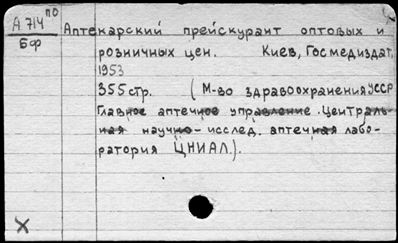 А 714 по
БФ
Аптекарский прейскурант оптовых и
розничных цен. Киев, Госмедиздат,
1953
355 стр. (М-во здравоохранения УССР
Главное аптечное управление. Централь-
ная научно-исслед. аптечная лабо-
ратория ЦНИАЛ.).
X